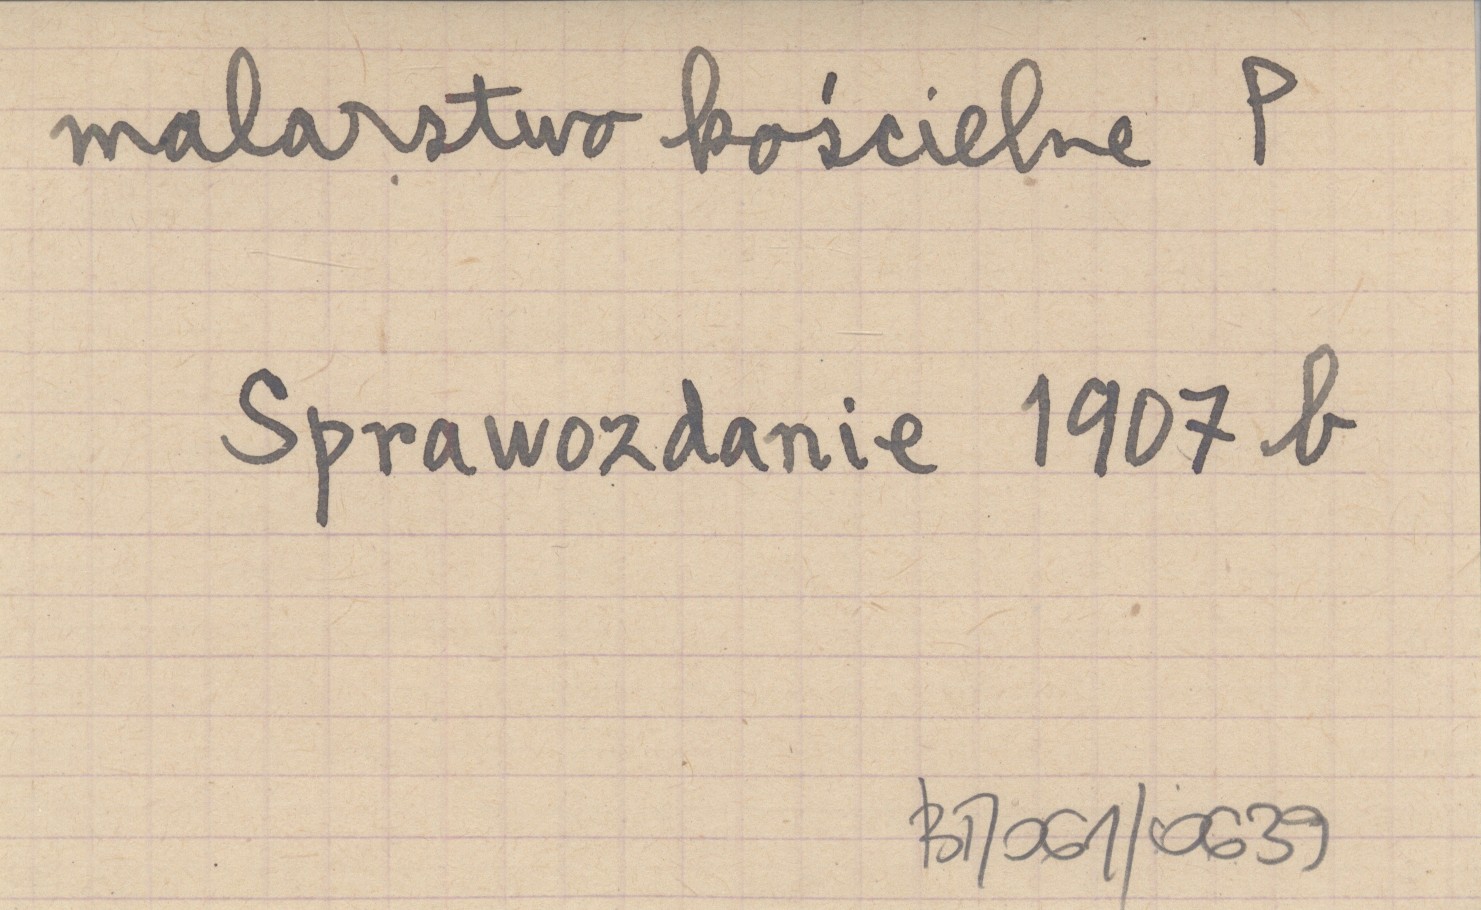 malarstwo kościelne P
Sprawozdanie 1907 b
BT/061/0639